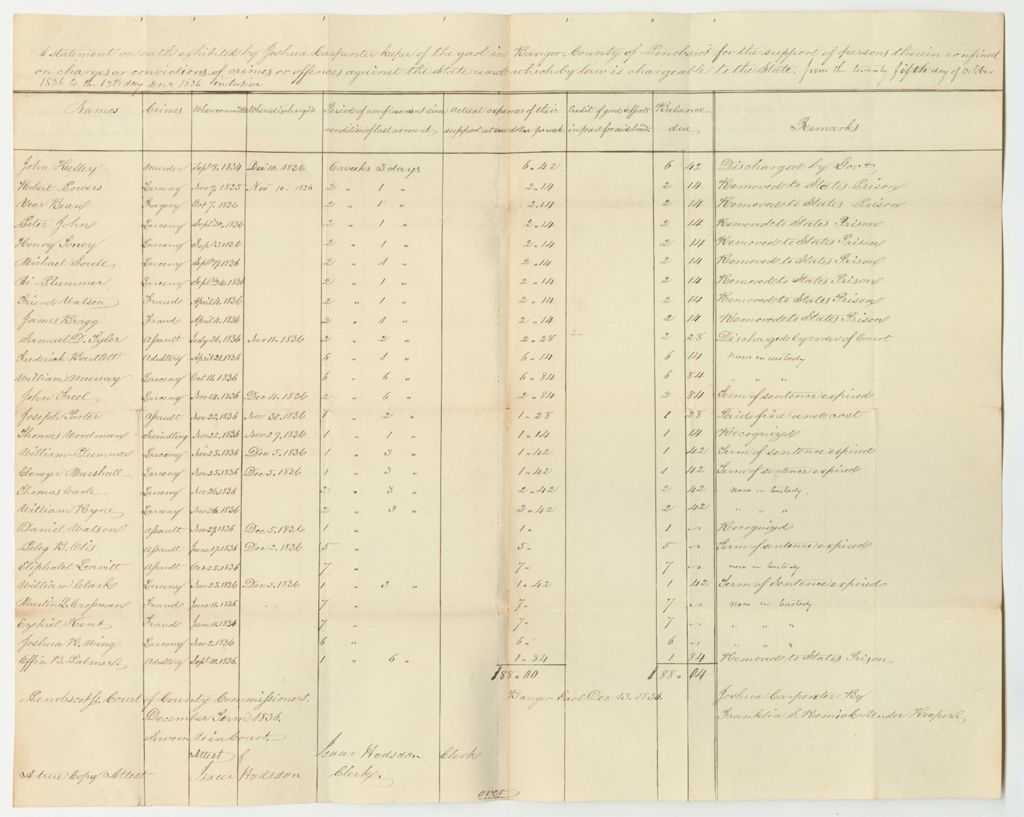 A statement on oath exhibited by Joshua Carpenter keeper of the gaol in Bangor, County of Penobscot for the support of persons therein confined
on charges or convictions of crimes or offences against the State and which by law is chargeable to the State. from the twenty fifth day of October
1836 to the 13th day Decr 1836 inclusive
Names Crimes When committed When discharged Period of confinement since rendition of last account. Actual expenses of their support at one dollar per week Credit of goods, effects in part for said and. Balance due Remarks
John Kelley Murder Sept 8. 1834 Dec 10. 1836 6 weeks 3 days 6.42 6 42 Discharged by Govr
Robert Powers Larceny Nov 7. 1835 Nov 10. 1836 2 " 1 " 2.14 2 14 Removed to States Prison
Bean Forgery Oct 7. 1836 2 " 1 " 2.14 2 14 Removed to States Prison
Peter John Larceny Sept 20. 1836 2 " 1 " 2.14 2 14 Removed to States Prison
Henry Toney Larceny Sept 13. 1836 2 " 1 " 2.14 2 14 Removed to States Prison
Michael Soule Larceny Sept 17. 1836 2 " 1 " 2.14 2 14 Removed to States Prison
Plummer Larceny Sept 24. 1836 2 " 1 " 2.14 2 14 Removed to States Prison
Friend Watson Fraud April 4. 1836 2 " 1 " 2.14 2 14 Removed to States Prison
James Bragg Fraud April 4. 1836 2 " 1 " 2.14 2 14 Removed to States Prison
Samuel D. Tyler Assault July 26. 1836 Nov 11. 1836 2 " 2 " 2.28 2 28 Discharged by order of Court
Frederick Bartlett Adultery April 21. 1836 6 " 1 " 6.14 6 14 now in custody
William Murray Larceny Oct 11. 1836 6 " 6 " 6.84 6 84 " " "
John Freel Larceny Nov 14. 1836 Dec 4. 1836 2 " 6 " 2.84 2 84 Term of sentence expired
Joseph Porter Assault Nov 22. 1836 Nov 30. 1836 1 " 2 " 1.28 1 28 Paid fine and cost
Thomas Woodman Swindling Nov 22. 1836 Nov 27. 1836 1 " 1 " 1.14 1 14 Recognized
William Plummer Larceny Nov 25. 1836 Dec 5. 1836 1 " 3 " 1.42 1 42 Term of sentence expired
Ebenezer Marshall Larceny Nov 25. 1836 Dec 5. 1836 1 " 3 " 1.42 1 42 Term of sentence expired
Thomas Larceny Nov 26. 1836 2 " 3 " 2.42 2 42 now in Custody
William Kyne Larceny Nov 26. 1836 2 " 3 " 2.42 2 42 " " "
Daniel Watson Assault Nov 29. 1836 Dec 5. 1836 1 " 1. 1 " Recognized
Peleg B. Otis Assault June 17. 1836 Dec 2. 1836 5 " 5. 5 " Term of sentence expired
Eliphalet Leavitt Assault Oct 25. 1836 7 " 7. 7 " now in custody
William Clark Larceny Nov 25. 1836 Dec 5. 1836 1 " 3 " 1.42 1 42 Term of Sentence expired
Martin L. Crossman Fraud June 11. 1836 7 " 7. 7 " now in Custody
Ezekiel Kent Fraud June 11. 1836 7 " 7. 7 " " " "
Joshua K. Wing Larceny Nov 2. 1836 6 " 6. 6 " " " "
Offin B. Palmer Adultery Sept 10. 1836. 1 " 6 " 1.84 1 84 Removed to States Prison
$88.00 $88.04
Penobscot ss. Court of County Commissioners. Bangor Gaol Dec 13. 1836. Joshua Carpenter By
December Term 1836. Franklin S. Under Keeper
Sworn to in Court.
Attest Isaac Hodsdon Clerk
A true Copy Attest Isaac Hodsdon Clerk.
over